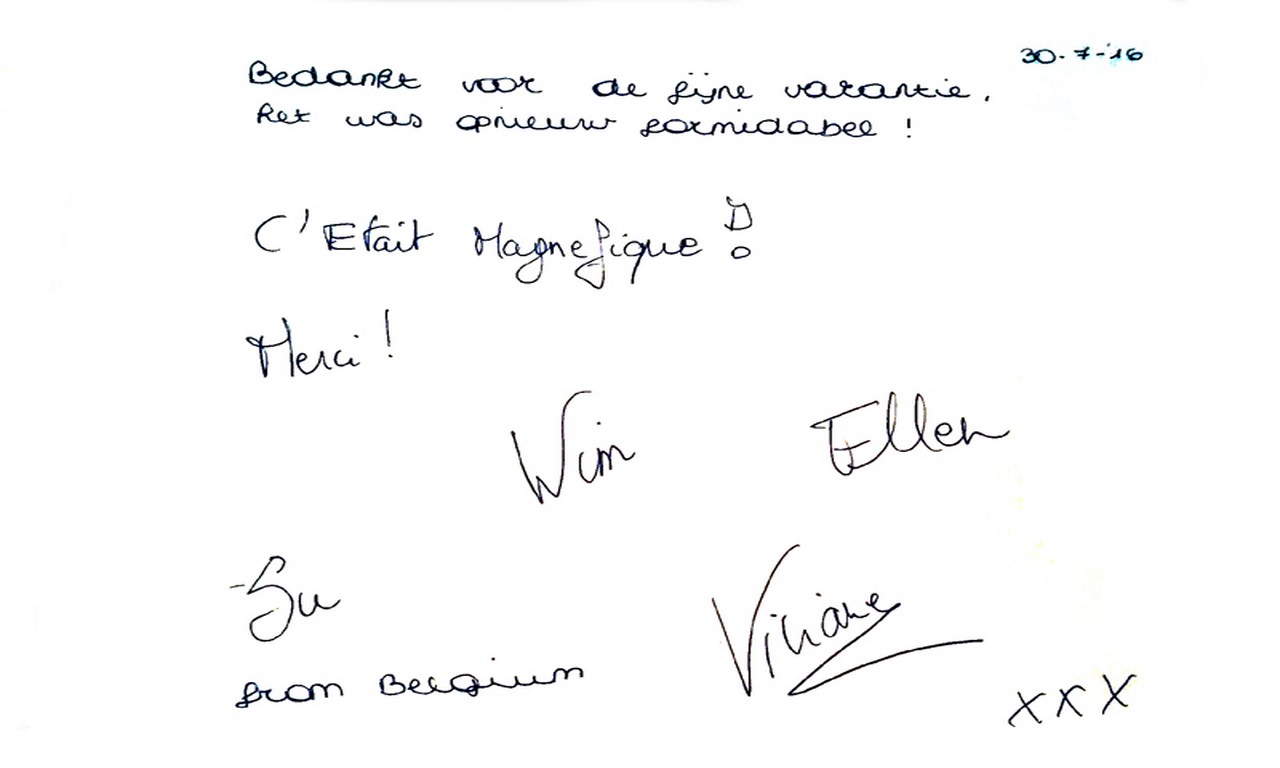 30-7-'16
Bedankt voor de fijne vakantie.
het was opnieuw formidabel !
C'Etait Magnefique !
Merci !
Wim Ellen
Su Viviane
from Belgium
xxx